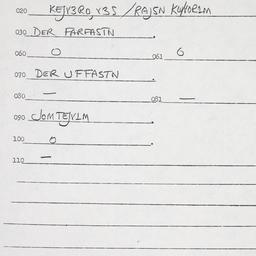 020 KEJY3RO, Y3S / RAJSN KUYOR1M
030 DER FARFASTN .
060 O 061 6
070 DER UFFASTN .
080 — 081 —
090 JOMTEJV1M .
100 O .
110 —